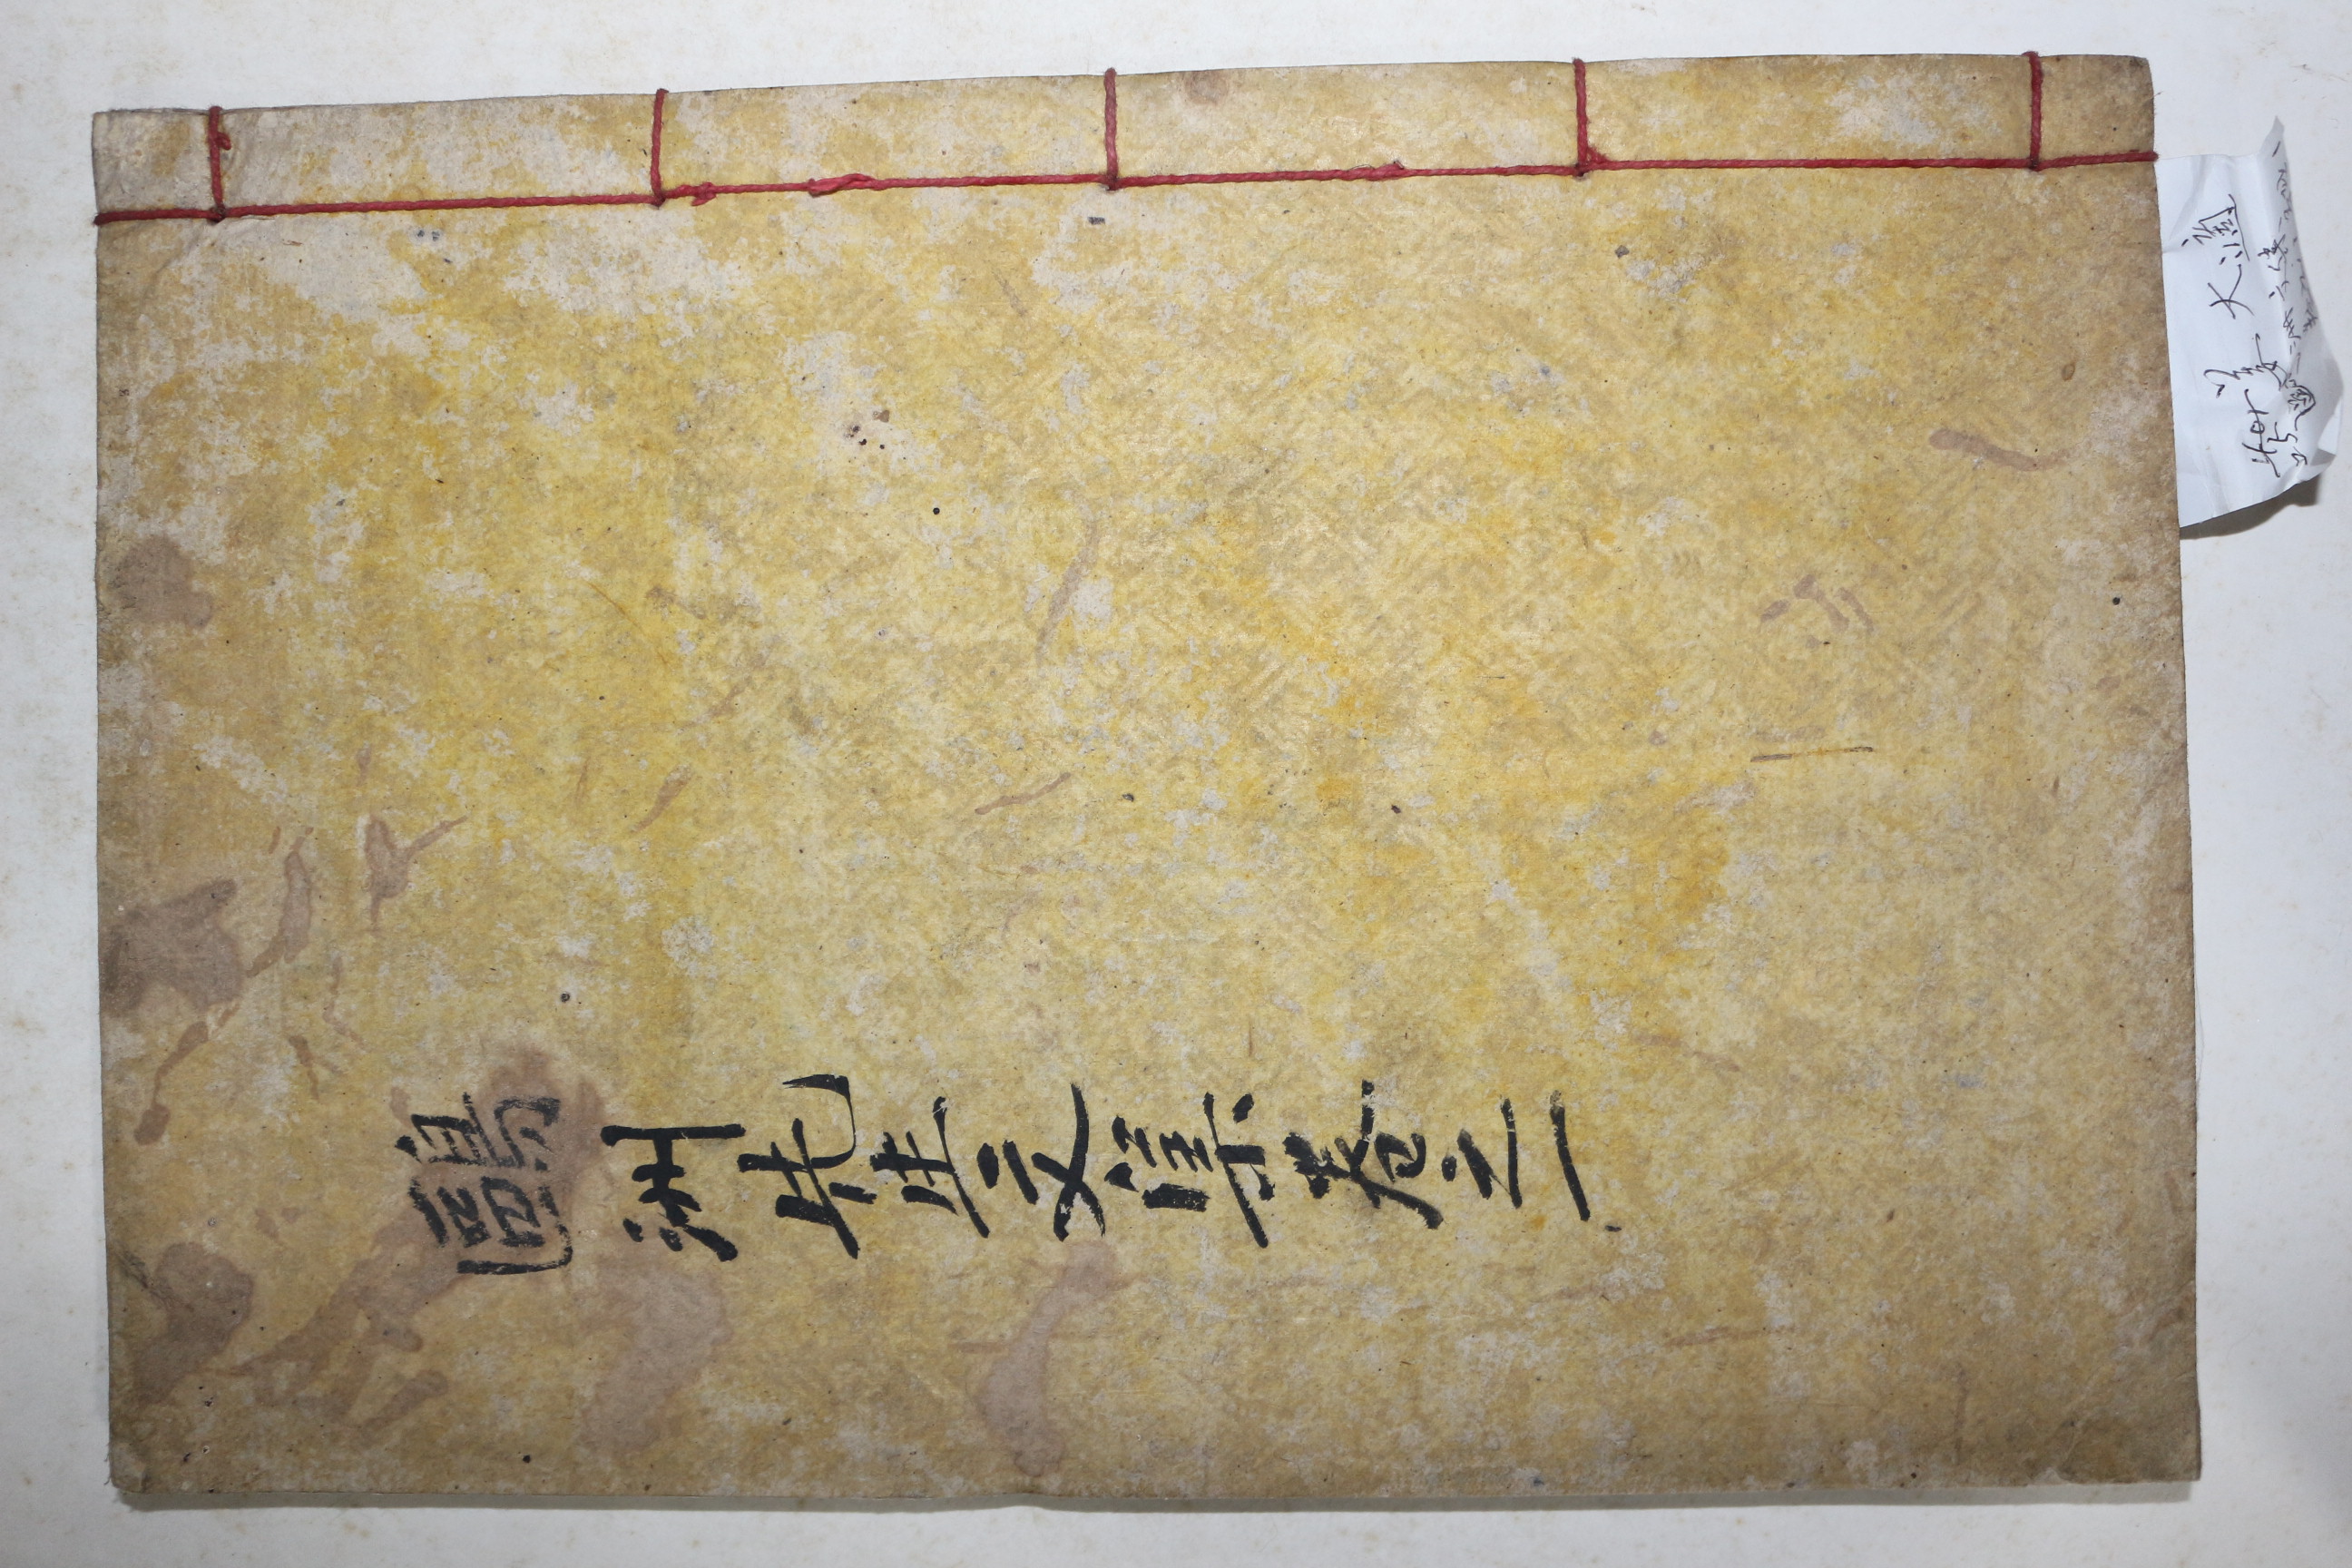 鷗洲先生文集卷之一
姜大適
洲文集